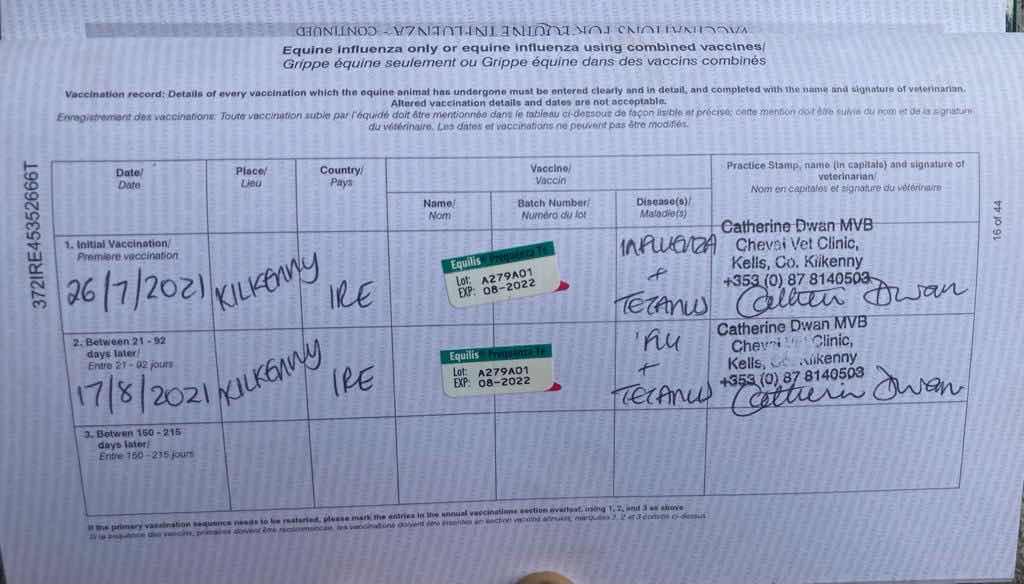 VACCINATIONS FOR EQUINE INFLUENZA - CONTINUED
Equine influenza only or equine influenza using combined vaccines/
Grippe équine seulement ou Grippe équine dans des vaccins combinés
Vaccination record: Details of every vaccination which the equine animal has undergone must be entered clearly and in detail, and completed with the name and signature of veterinarian.
Altered vaccination details and dates are not acceptable.
Enregistrement des vaccinations: Toute vaccination subie par l'équidé doit être mentionnée dans le tableau ci-dessous de façon lisible et précise; cette mention doit être suivie du nom et de la signature
du vétérinaire. Les dates et vaccinations ne peuvent pas être modifiés.
372IRE45352666T
16 of 44
Date/
Date
Place/
Lieu
Country/
Pays
Vaccine/
Vaccin
Name/
Nom
Batch Number/
Numéro du lot
Disease(s)/
Maladie(s)
Practice Stamp, name (in capitals) and signature of
veterinarian/
Nom en capitales et signature du vétérinaire
1. Initial Vaccination/
Premiere vaccination
26/7/2021
KILKENNY
IRE
Equilis Prequenza Te
Lot: A279A01
EXP: 08-2022
INFLUENZA
+
TETANUS
Catherine Dwan MVB
Cheval Vet Clinic,
Kells, Co. Kilkenny
+353 (0) 87 8140503
Catherin Dwan
2. Between 21 - 92
days later/
Entre 21 - 92 jours
17/8/2021
KILKENNY
IRE
Equilis Prequenza Te
Lot: A279A01
EXP: 08-2022
'FLU
+
TETANUS
Catherine Dwan MVB
Cheval Vet Clinic,
Kells, Co. Kilkenny
+353 (0) 87 8140503
Catherin Dwan
3. Betwen 150 - 215
days later/
Entre 150 - 215 jours
If the primary vaccination sequence needs to be restarted, please mark the entries in the annual vaccinations section overleaf, using 1, 2, and 3 as above
Si la séquence des vaccins, primaires doivent être recommencée, les vaccinations doivent être insérées en section vaccins annuels, marquées 1, 2 et 3 comme ci-dessus